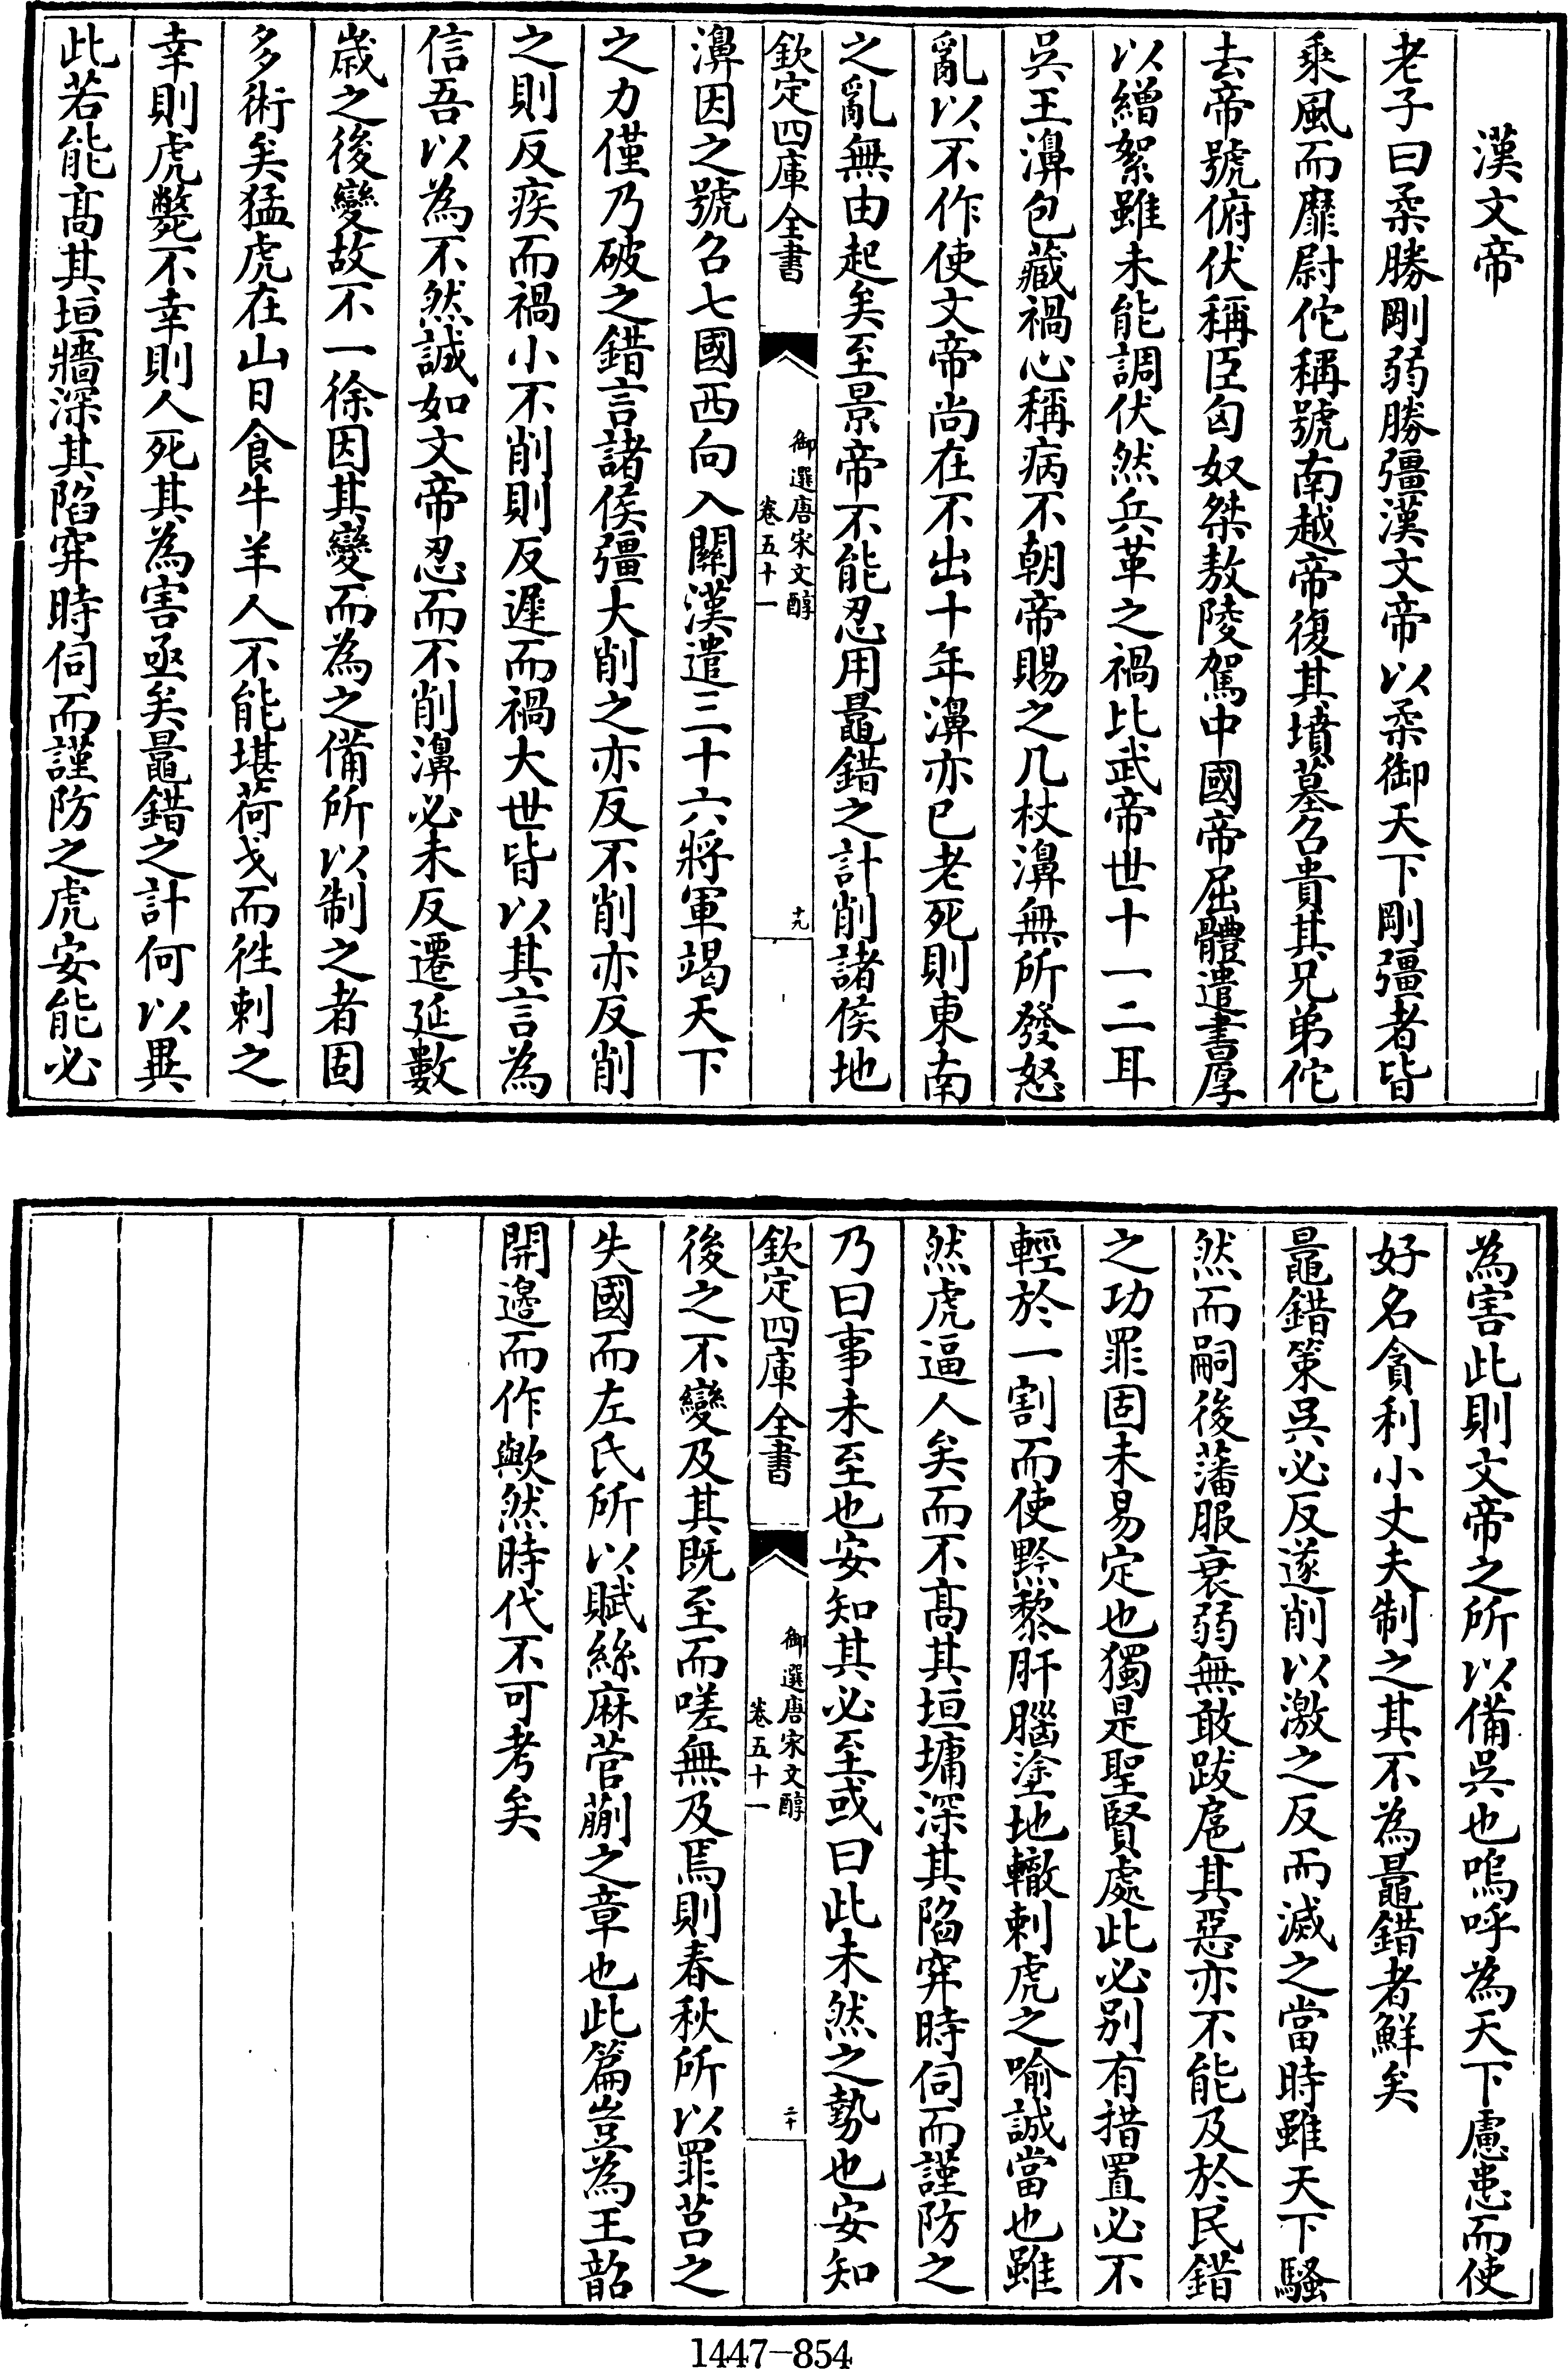 漢文帝
老子曰柔勝剛弱勝彊漢文帝以柔御天下剛彊者皆
乘風而靡尉佗稱號南越帝復其墳墓召貴其兄弟佗
去帝號俯伏稱臣匈奴桀敖陵駕中國帝屈體遣書厚
以繒絮雖未能調伏然兵革之禍比武帝世十一二耳
吳王濞包藏禍心稱病不朝帝賜之几杖濞無所發怒
亂以不作使文帝尚在不出十年濞亦已老死則東南
之亂無由起矣至景帝不能忍用鼂錯之計削諸侯地
欽定四庫全書
御選唐宋文醇
卷五十一
十九
濞因之號召七國西向入關漢遣三十六將軍竭天下
之力僅乃破之錯言諸侯彊大削之亦反不削亦反削
之則反疾而禍小不削則反遲而禍大世皆以其言為
信吾以為不然誠如文帝忍而不削濞必未反遷延數
歳之後變故不一徐因其變而為之備所以制之者固
多術矣猛虎在山日食牛羊人不能堪荷戈而徃刺之
幸則虎斃不幸則人死其為害亟矣鼂錯之計何以異
此若能髙其垣牆深其陷穽時伺而謹防之虎安能必
為害此則文帝之所以備吳也嗚呼為天下慮患而使
好名貪利小丈夫制之其不為鼂錯者鮮矣
鼂錯策吳必反遂削以激之反而滅之當時雖天下騷
然而嗣後藩服衰弱無敢跋扈其惡亦不能及於民錯
之功罪固未易定也獨是聖賢處此必别有措置必不
輕於一割而使黔黎肝腦塗地轍刺虎之喻誠當也雖
然虎逼人矣而不髙其垣墉深其陷穽時伺而謹防之
乃曰事未至也安知其必至或曰此未然之勢也安知
欽定四庫全書
御選唐宋文醇
卷五十一
二十
後之不變及其既至而嗟無及焉則春秋所以罪莒之
失國而左氏所以賦絲麻菅蒯之章也此篇豈為王韶
開邊而作歟然時代不可考矣
1447-854